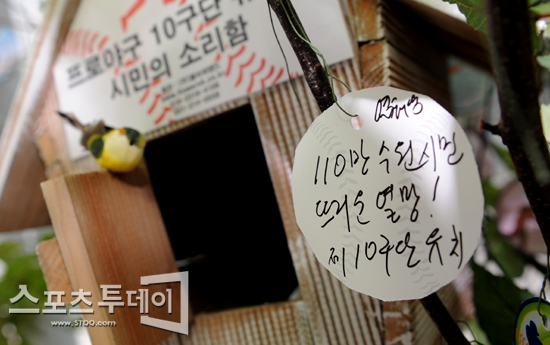 프로야구 10구단
시민의 소리함
염태영
110만 수원시민
뜨거운 열망!
제10구단 유치
스포츠투데이
www.STOO.com